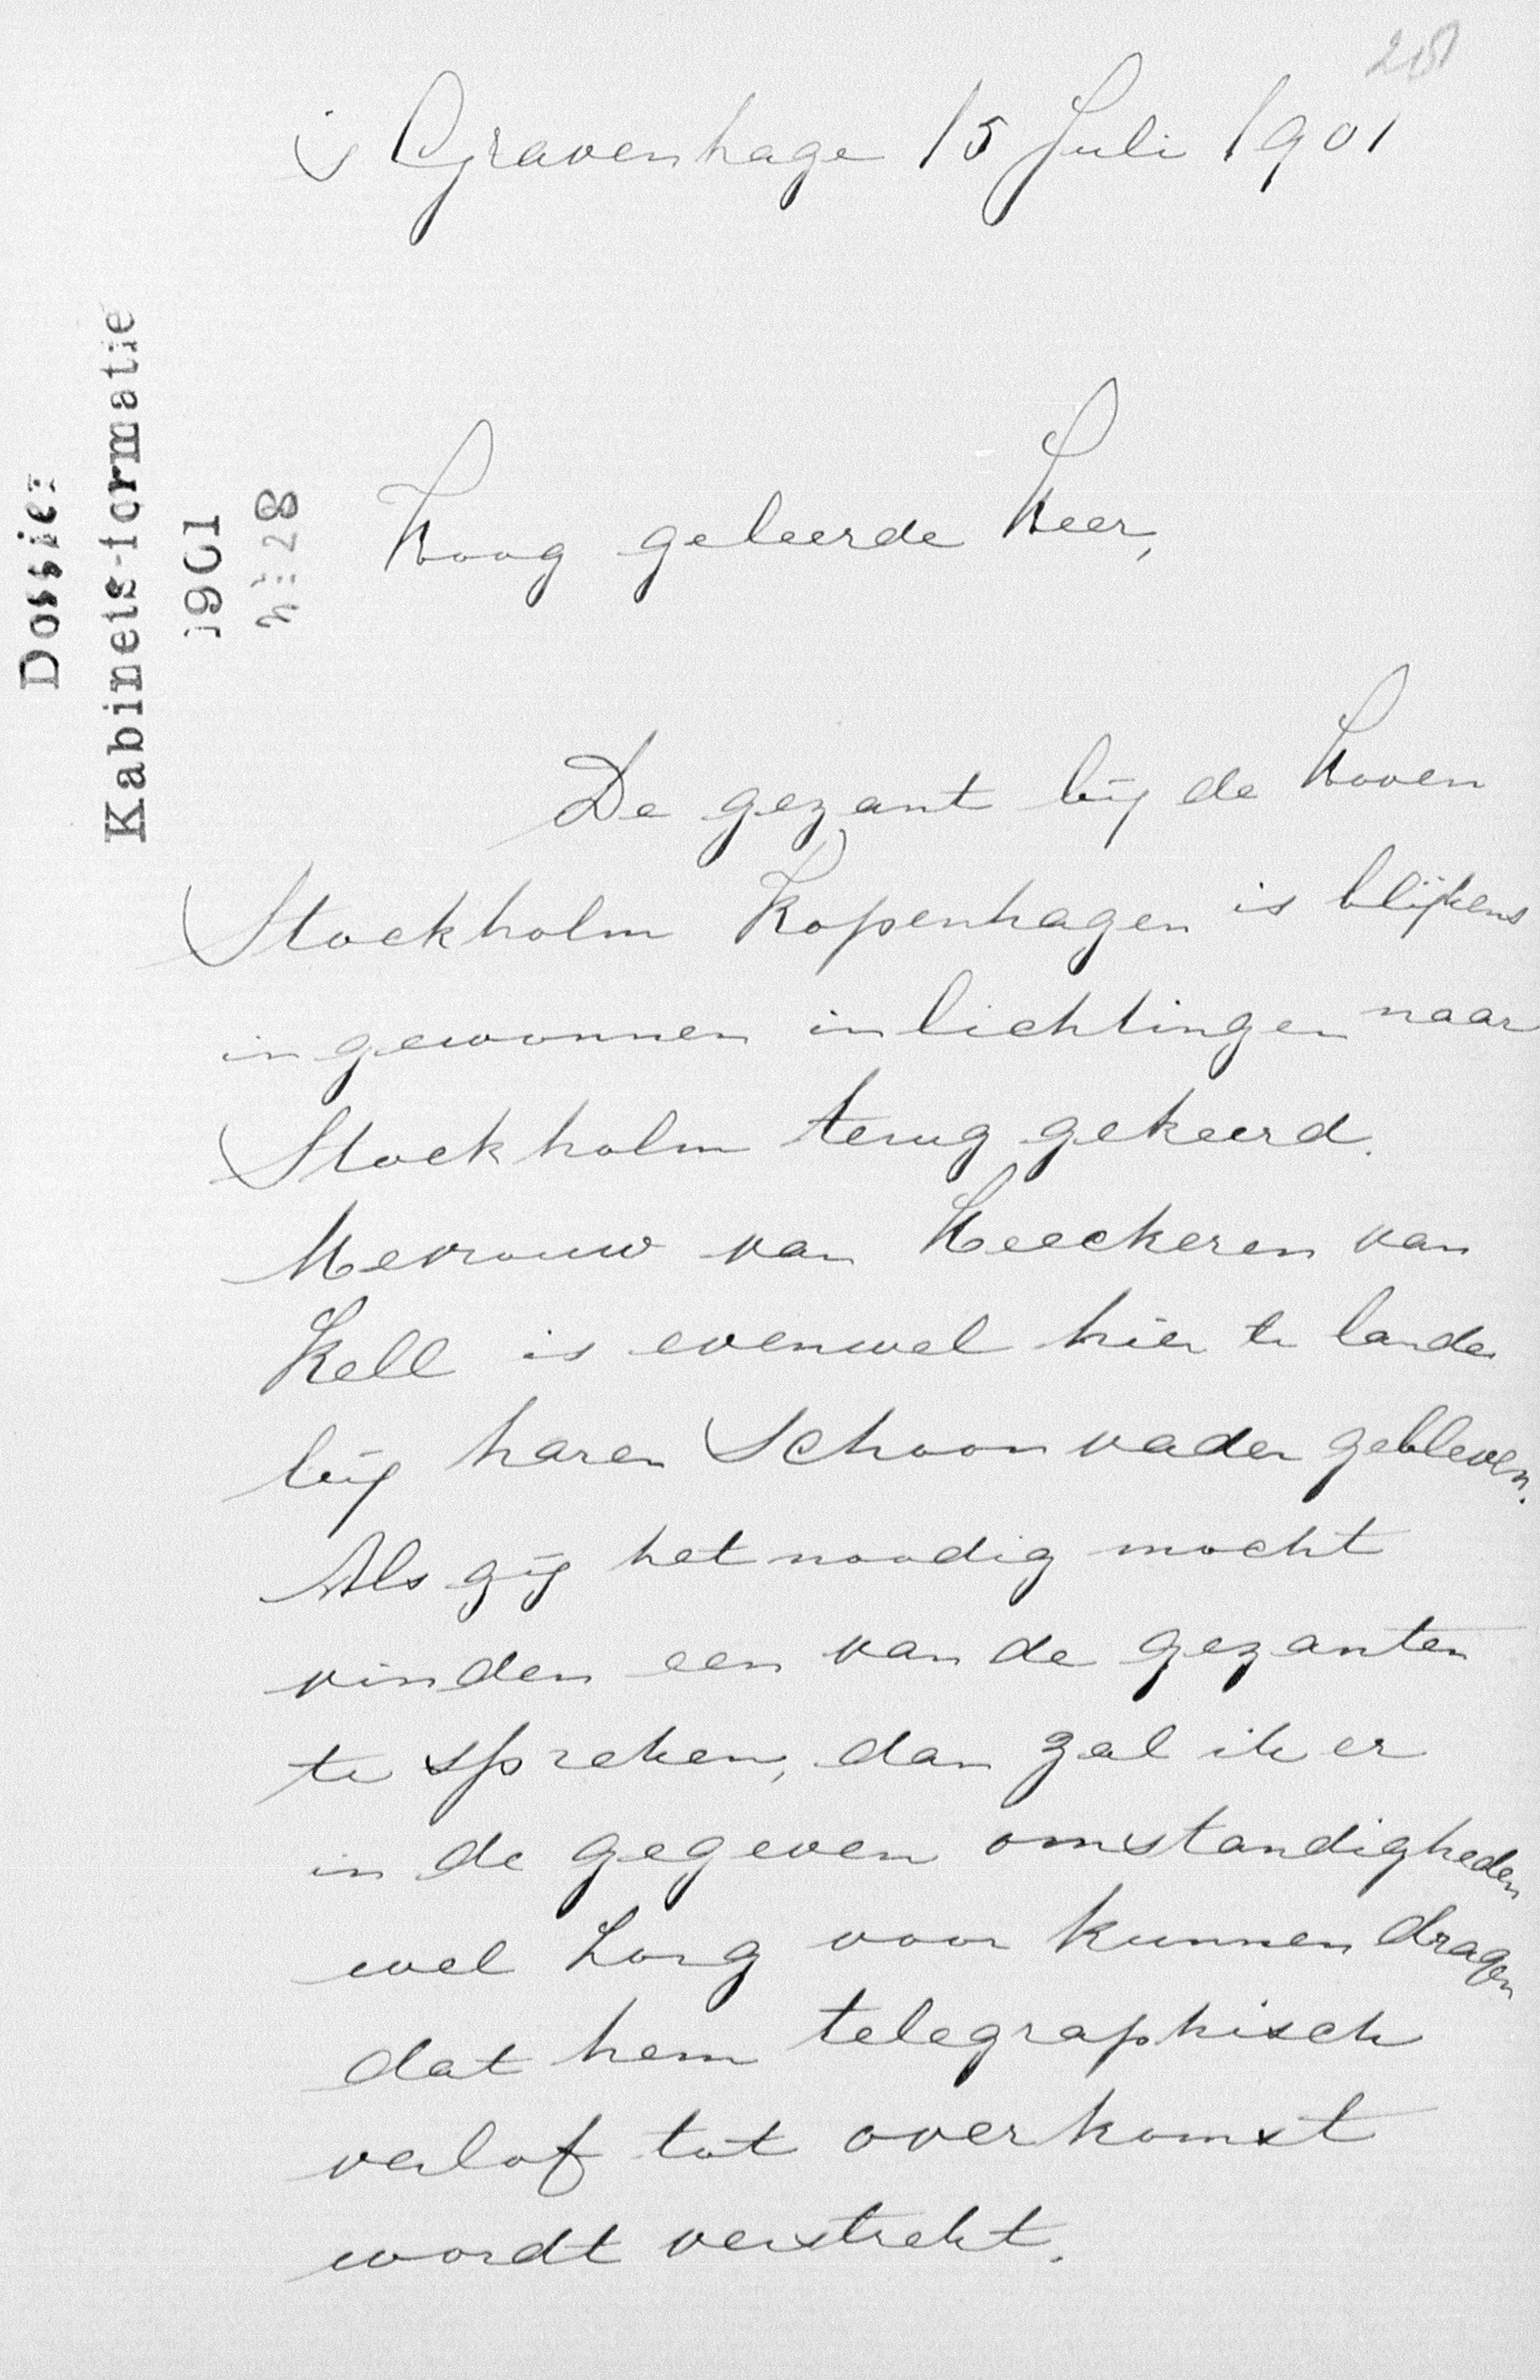 's Gravenhage 15 Juli 1901
Dossier
Kabinets-formatie
1901
Nº 28
Hoog geleerde Heer,
De gezant bij de Hoven
Stockholm Kopenhagen is blijkens
ingewonnen inlichtingen naar
Stockholm terug gekeerd.
Mevrouw van Heeckeren van
Kell is evenwel hier te lande
bij haren Schoonvader gebleven.
Als gij het noodig mocht
vinden een van de gezanten
te spreken, dan zal ik er
in de gegeven omstandigheden
wel zorg voor kunnen dragen
dat hem telegraphisch
verlof tot overkomst
wordt verstrekt.